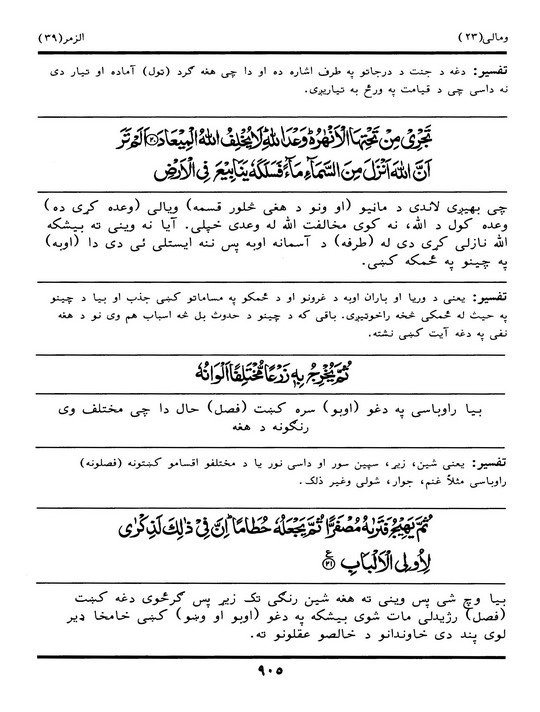 ومالی(۲۳)
الزمر(۳۹)
تفسیر: دغه د جنت د درجاتو په طرف اشاره ده او دا چی هغه گرد (تول) آماده او تیار دی
نه داسی چی د قیامت په ورځ به تیاریږی.
تَجْرِیْ مِنْ تَحْتِهَا الْاَنْهٰرُ ۬ وَعْدَ اللّٰهِ لَا یُخْلِفُ اللّٰهُ الْمِیْعَادَ ﴿۲۰﴾ اَلَمْ تَرَ
اَنَّ اللّٰهَ اَنْزَلَ مِنَ السَّمَآءِ مَآءً فَسَلَكَهٗ یَنَابِیْعَ فِی الْاَرْضِ
چی بهیږی لاندی د مانیو (او ونو د هغی څلور قسمه) ویالی (وعده کړی ده)
وعده کول د الله، نه کوی مخالفت الله له وعدی خپلی. آیا نه وینی ته بیشکه
الله نازلی کړی دی له (طرفه) د آسمانه اوبه پس ننه ایستلی ئی دی دا (اوبه)
په چینو په ځمکه کښی.
تفسیر: یعنی د وریا او باران اوبه د غرونو او د ځمکو په مساماتو کښی جذب او بیا د چینو
په حیث له ځمکی څخه راخوتیږی. باقی که د چینو د حدوث بل څه اسباب هم وی نو د هغه
نفی په دغه آیت کښی نشته.
ثُمَّ یُخْرِجُ بِهٖ زَرْعًا مُّخْتَلِفًا اَلْوَانُهٗ
بیا راوباسی په دغو (اوبو) سره کښت (فصل) حال دا چی مختلف وی
رنگونه د هغه
تفسیر: یعنی شین، زیړ، سپین سور او داسی نور یا د مختلفو اقسامو کښتونه (فصلونه)
راوباسی مثلاً غنم، جوار، شولی وغیر ذلک.
ثُمَّ یَهِیْجُ فَتَرٰىهُ مُصْفَرًّا ثُمَّ یَجْعَلُهٗ حُطَامًا ؕ اِنَّ فِیْ ذٰلِكَ لَذِكْرٰی
لِاُولِی الْاَلْبَابِ ﴿۲۱﴾ ع
بیا وچ شی پس وینی ته هغه شین رنگی تک زیړ پس گرځوی دغه کښت
(فصل) رژیدلی مات شوی بیشکه په دغو (اوبو او وښو) کښی خامخا ډیر
لوی پند دی خاوندانو د خالصو عقلونو ته.
۹۰۵